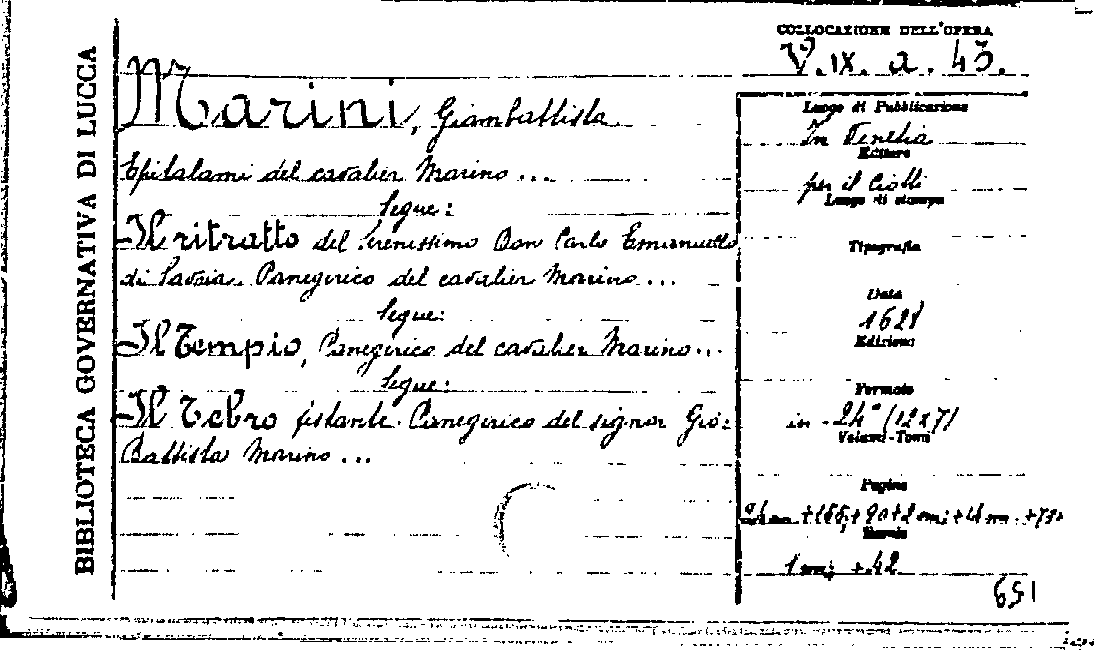 BIBLIOTECA GOVERNATIVA DI LUCCA
COLLOCAZIONE DELL'OPERA
V.IX. a. 43.
Marini, Giambattista
Epitalami del cavalier Marino ...
Segue:
Il ritratto del Serenissimo Don Carlo Emanuello
di Savoia. Panegirico del cavalier Marino ...
Segue:
Il Tempio, Panegirico del cavalier Marino...
Segue:
Il Tebro festante. Panegirico del signor Gio:
Battista Marino ...
Luogo di Pubblicazione
In Venetia
Editore
per il Ciotti
Luogo di stampa
Tipografia
Data
1628
Edizione
Formato
in -24° (12x7)
Volumi-Tomi
Pagine
+ 42